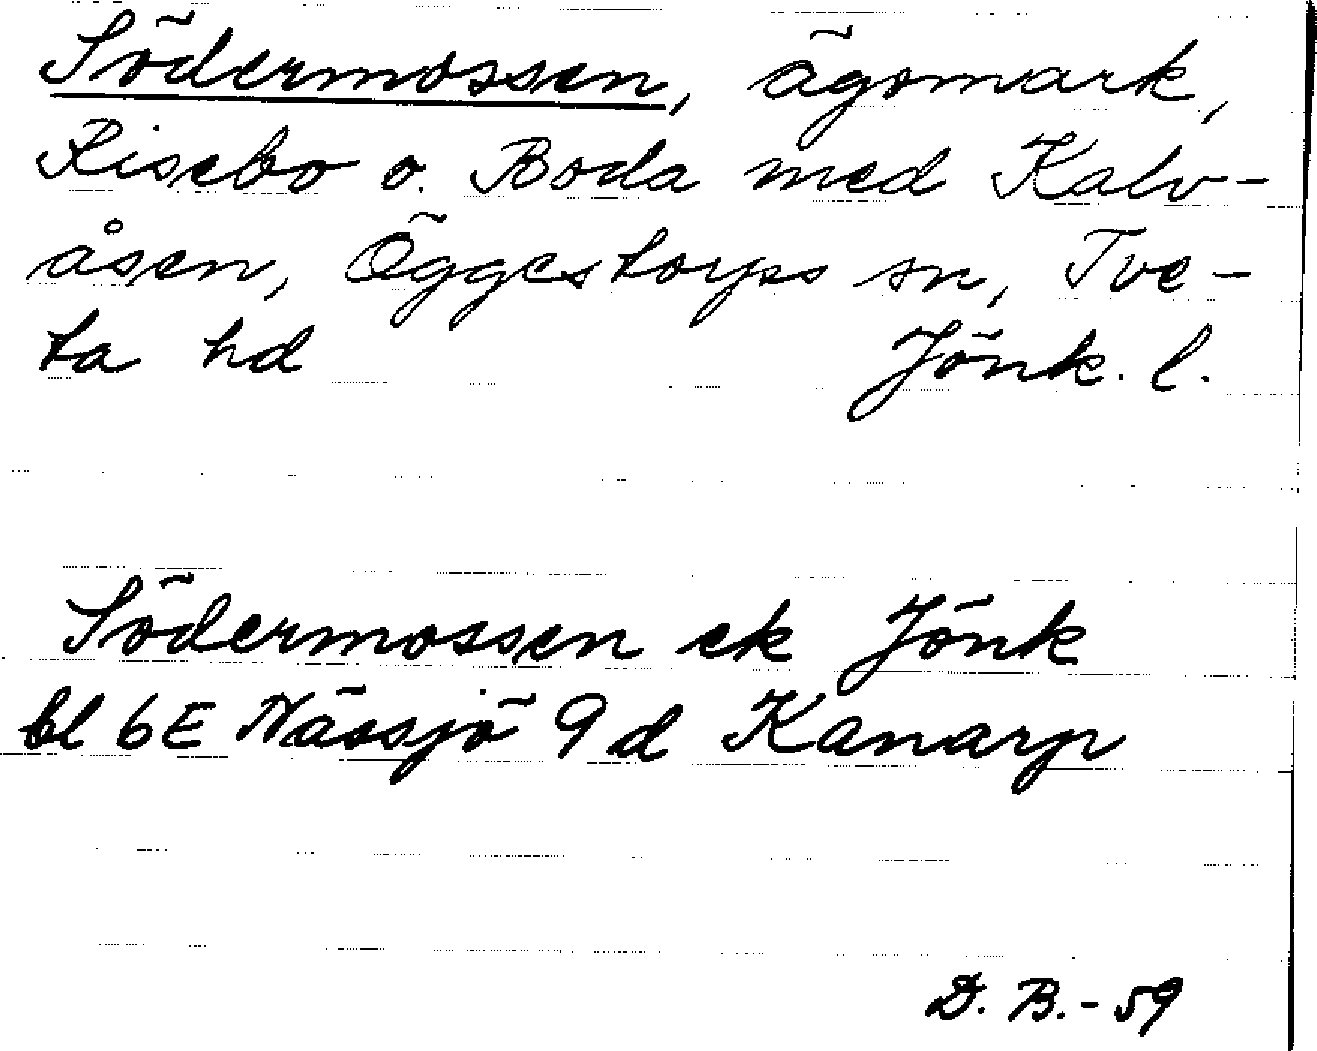 Södermossen, ägomark,
Risebo o. Boda med Kalv-
åsen, Öggestorps sn, Tve-
ta hd Jönk. l.
Södermossen ek Jönk
bl 6E Nässjö 9d Kanarp
D. B. - 59